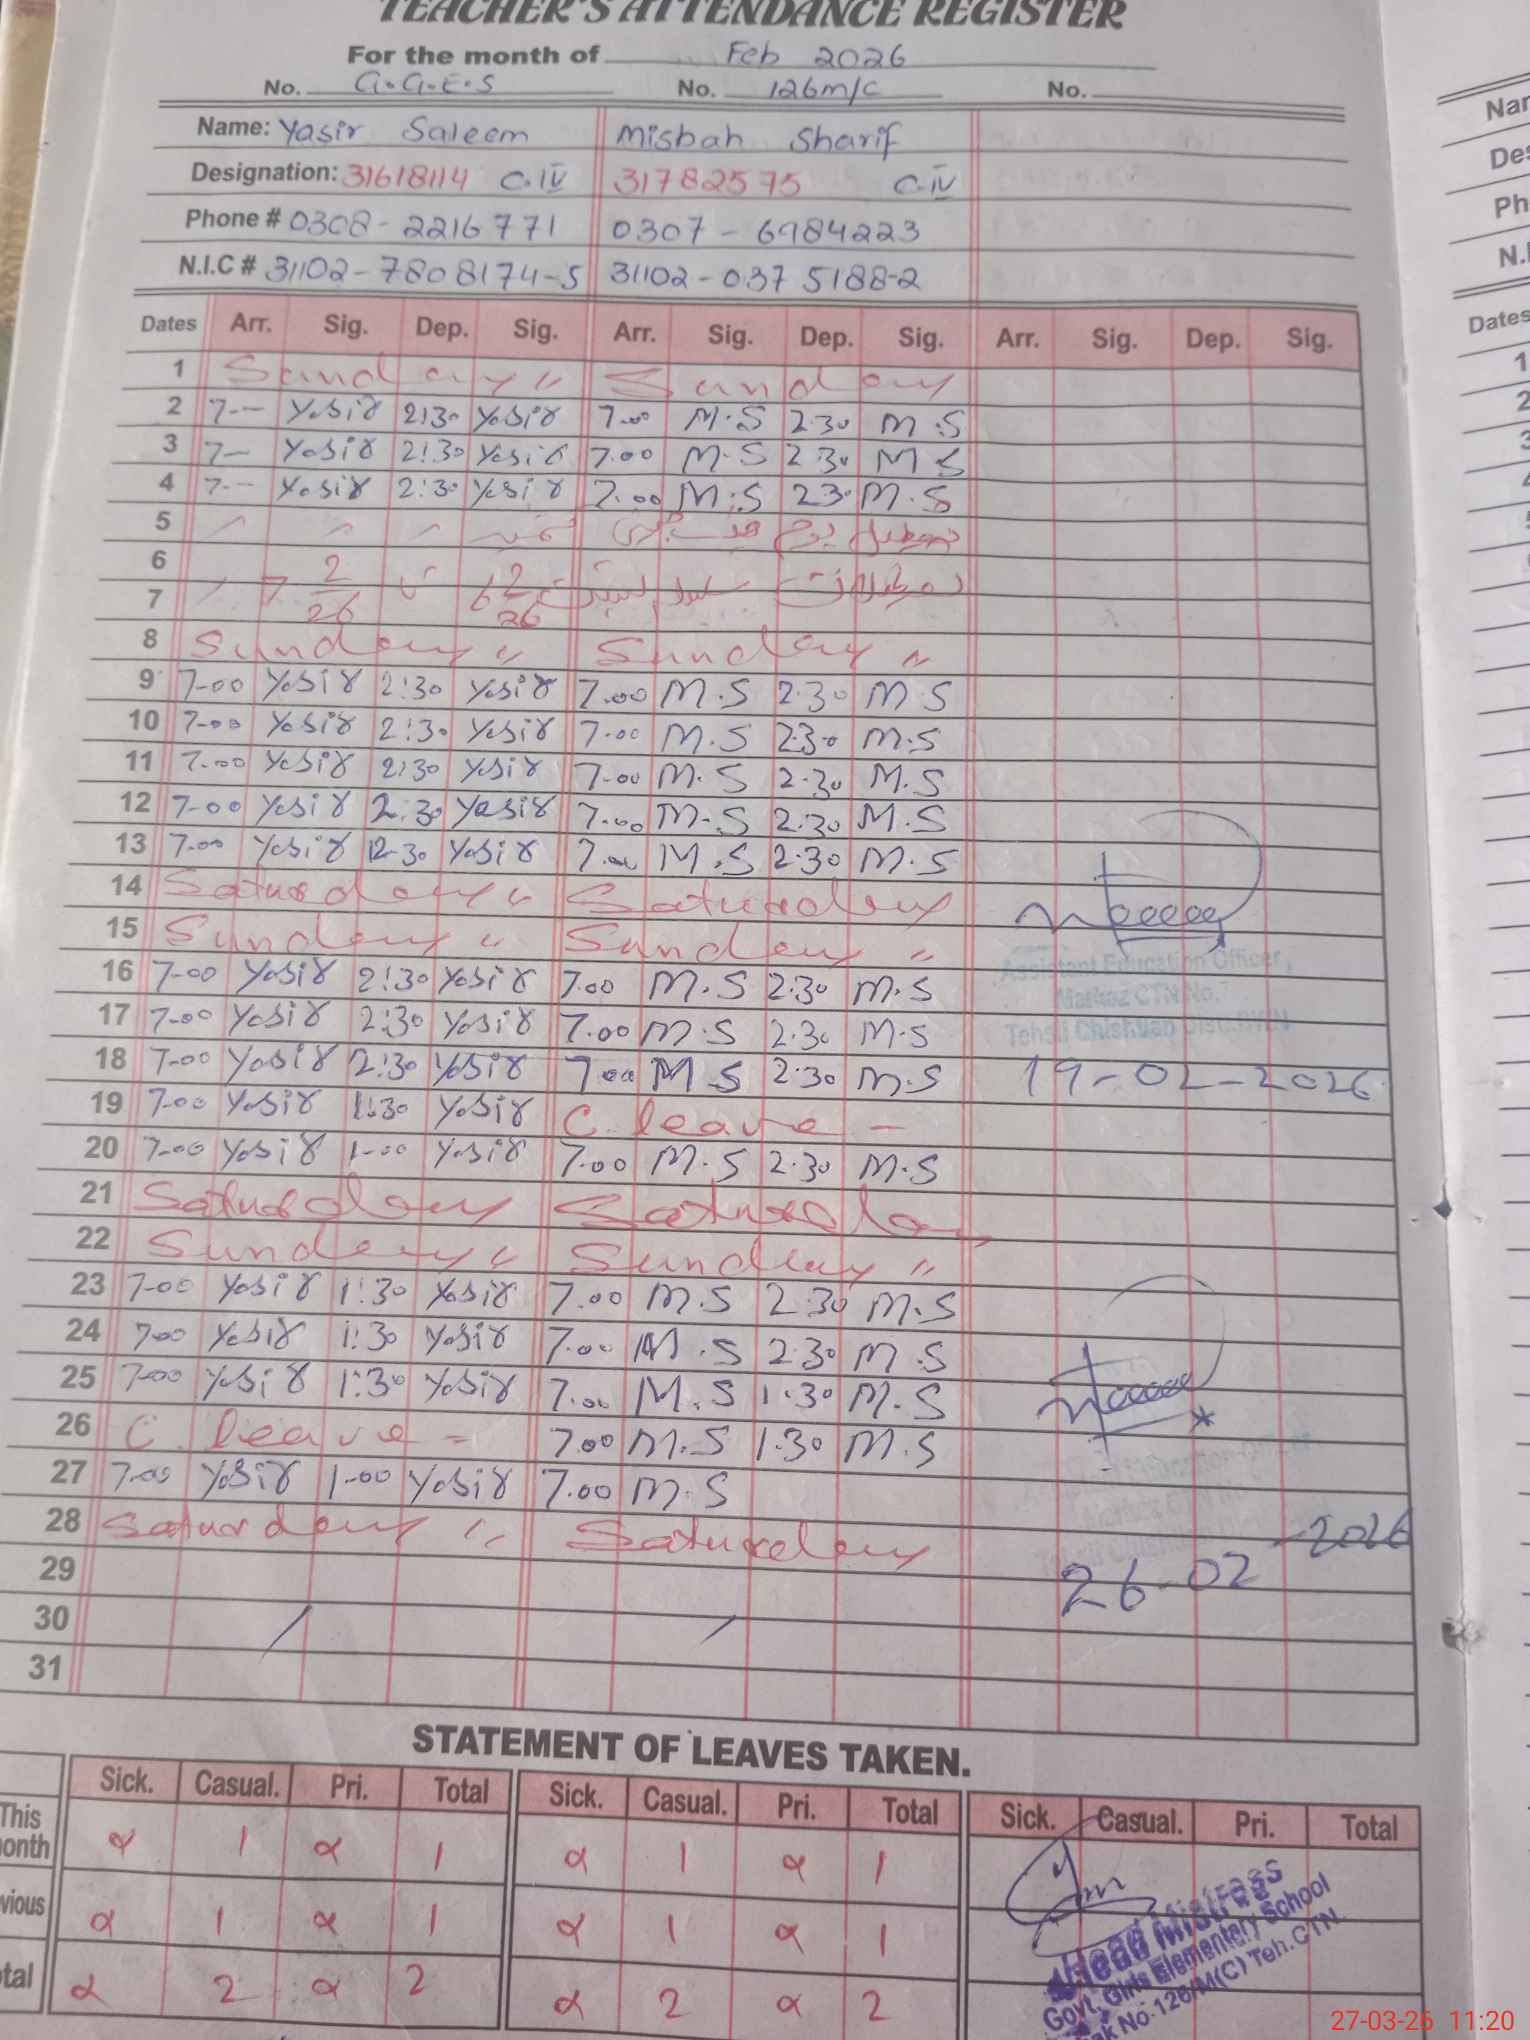 TEACHER'S ATTENDANCE REGISTER
For the month of Feb 2026
No. G.G.E.S No. 126m/c No.
Name: Yasir Saleem Misbah Sharif
Designation: 31618114 C.IV 31782575 C.IV
Phone # 0308-2216771 0307-6984223
N.I.C # 31102-7808174-5 31102-0375188-2
Dates Arr. Sig. Dep. Sig. Arr. Sig. Dep. Sig. Arr. Sig. Dep. Sig.
1 Sunday " Sunday
2 7-- Yasir 2:30 Yasir 7.00 M.S 2.30 M.S
3 7- Yasir 2:30 Yasir 7.00 M.S 2.30 M.S
4 7-- Yasir 2:30 Yasir 7.00 M.S 2.30 M.S
5 تعطیل یوم
6 2/26 6 2/26
7 7
8 Sunday " Sunday "
9 7-00 Yasir 2:30 Yasir 7.00 M.S 2.30 M.S
10 7-00 Yasir 2:30 Yasir 7.00 M.S 2.30 M.S
11 7-00 Yasir 2:30 Yasir 7-00 M.S 2.30 M.S
12 7-00 Yasir 2:30 Yasir 7.00 M.S 2.30 M.S
13 7.00 Yasir 12-30 Yasir 7.00 M.S 2.30 M.S
14 Saturday " Saturday
15 Sunday " Sunday "
Assistant Education Officer,
16 7-00 Yasir 2:30 Yasir 7.00 M.S 2.30 M.S
Markaz CTN No.
17 7-00 Yasir 2:30 Yasir 7.00 M.S 2.30 M.S
Tehsil Chishtian Dist. BWN
18 7-00 Yasir 2:30 Yasir 7.00 M.S 2.30 M.S 19-02-2026
19 7-00 Yasir 1:30 Yasir C. leave -
20 7-00 Yasir 1-00 Yasir 7.00 M.S 2.30 M.S
21 Saturday Saturday
22 Sunday " Sunday "
23 7-00 Yasir 1:30 Yasir 7.00 M.S 2.30 M.S
24 7-00 Yasir 1:30 Yasir 7.00 M.S 2.30 M.S
25 7-00 Yasir 1:30 Yasir 7.00 M.S 1.30 M.S
26 C. leave - 7.00 M.S 1.30 M.S
27 7-00 Yasir 1-00 Yasir 7.00 M.S
28 Saturday " Saturday
26-02-2026
29
30
31
STATEMENT OF LEAVES TAKEN.
Sick. Casual. Pri. Total Sick. Casual. Pri. Total Sick. Casual. Pri. Total
This
onth α 1 α 1 α 1 α 1
vious α 1 α 1 α 1 α 1
tal α 2 α 2 α 2 α 2
Head Mistress
Govt. Girls Elementary School
ak No.126/M(C) Teh.CTN.
27-03-26 11:20